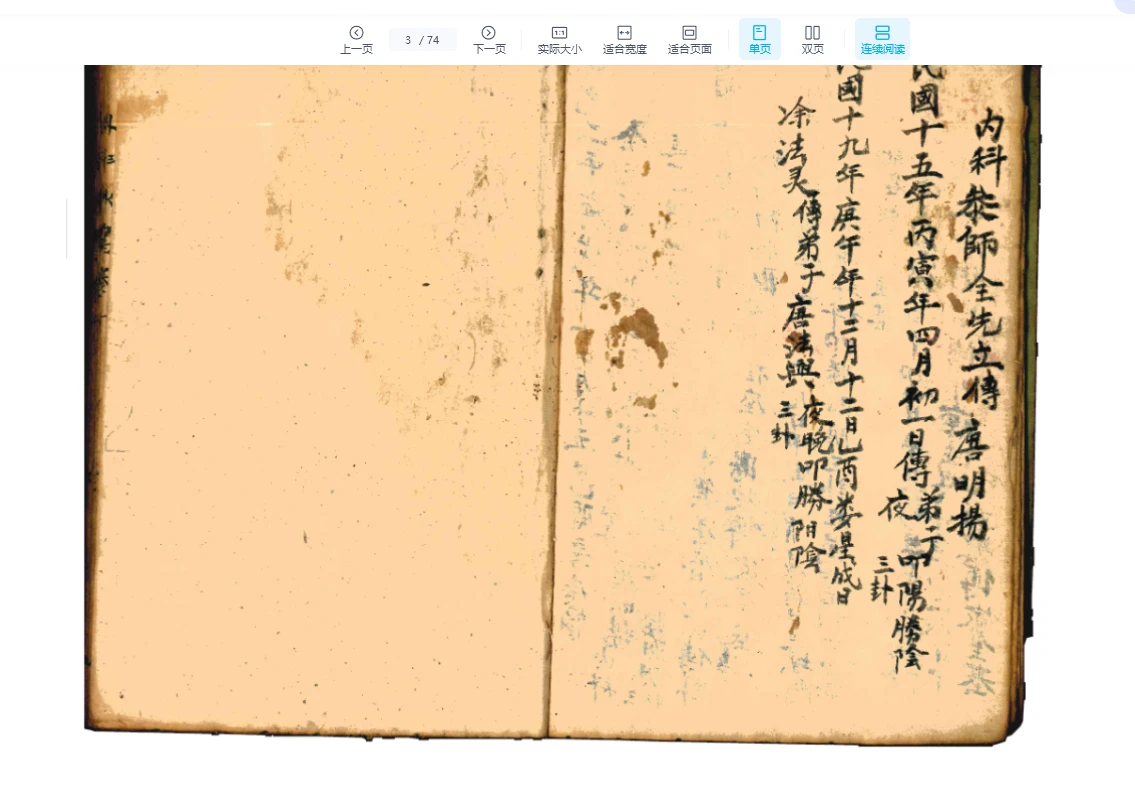 上一页
3 / 74
下一页
1:1
实际大小
适合宽度
适合页面
单页
双页
连续阅读
内科黎師全先立傳 唐明揚
民國十五年丙寅年四月初一日傳弟子
夜叩陽勝陰
三卦
國十九年庚午年十二月十二日己酉娄星成日
凃法灵傳弟子唐法興夜晚叩勝阳陰
三卦